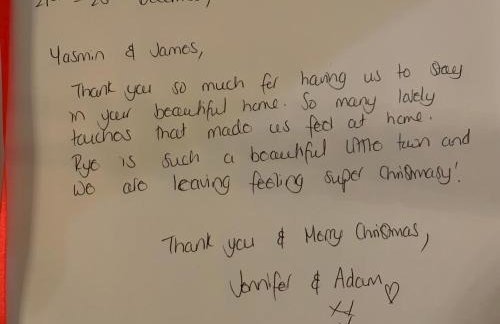 Yasmin & James,
Thank you so much for having us to stay
in your beautiful home. So many lovely
touches that made us feel at home.
Rye is such a beautiful little town and
we are leaving feeling super Christmasy!
Thank you & Merry Christmas,
Jennifer & Adam ♡